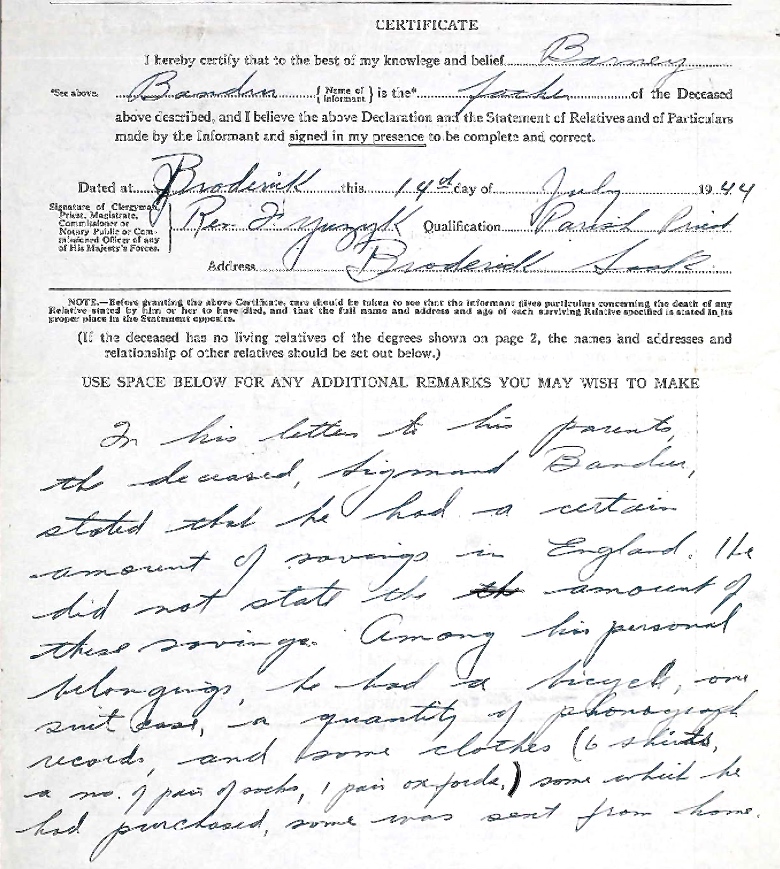 CERTIFICATE
I hereby certify that to the best of my knowlege and belief Barney
*See above. Bandur { Name of Informant } is the* father of the Deceased
above described, and I believe the above Declaration and the Statement of Relatives and of Particulars
made by the Informant and signed in my presence to be complete and correct.
Dated at Broderick this 14th day of July 1944
Signature of Clergyman,
Priest, Magistrate,
Commissioner or
Notary Public or Com-
missioned Officer of any
of His Majesty's Forces.
Rev. Qualification Parish Priest
Address Broderick Sask
NOTE.—Before granting the above Certificate, care should be taken to see that the informant gives particulars concerning the death of any
Relative stated by him or her to have died, and that the full name and address and age of each surviving Relative specified is stated in its
proper place in the Statement appears.
(If the deceased has no living relatives of the degrees shown on page 2, the names and addresses and
relationship of other relatives should be set out below.)
USE SPACE BELOW FOR ANY ADDITIONAL REMARKS YOU MAY WISH TO MAKE
In his letters to his parents,
the deceased, Sigmund Bandur,
stated that he had a certain
amount of savings in England. He
did not state the amount of
these savings. Among his personal
belongings, he had a bicycle, one
suit case, a quantity of phonograph
records, and some clothes (6 shirts,
a no. of pair of socks, 1 pair oxfords,) some which he
had purchased, some was sent from home.